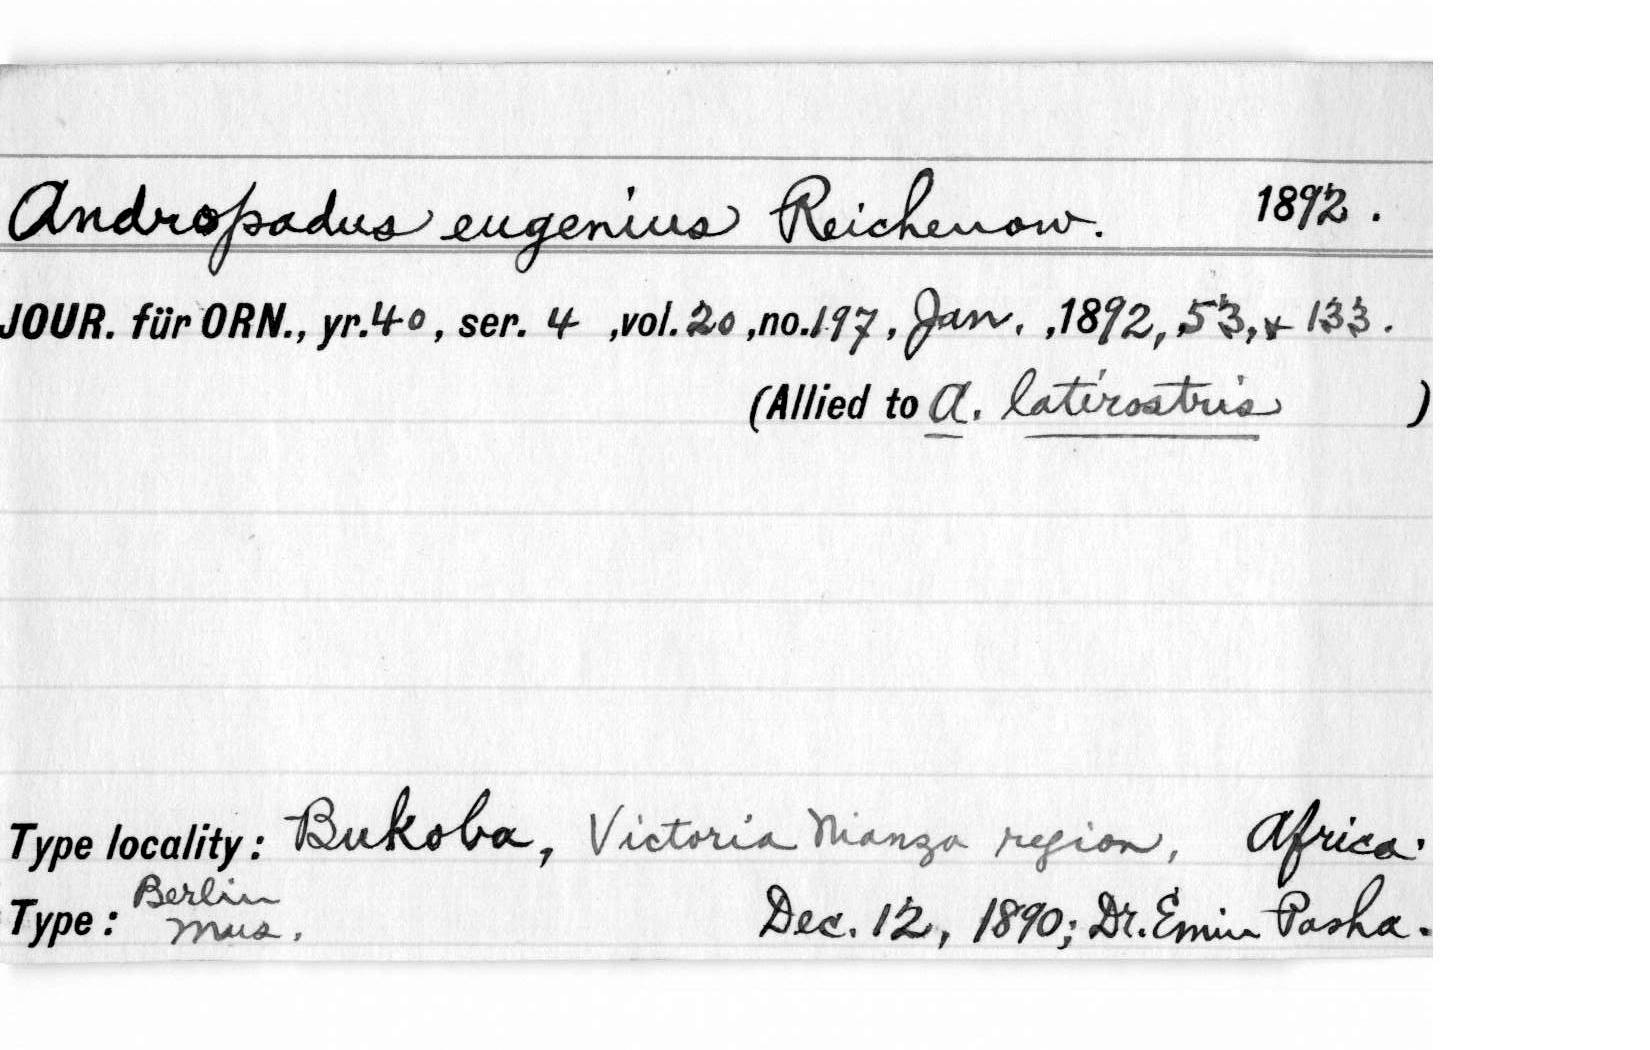 Andropadus eugenius Reichenow. 1892.
JOUR. für ORN., yr. 40, ser. 4 ,vol. 20 ,no. 197, Jan. ,1892, 53, & 133.
(Allied to A. latirostris )
Type locality: Bukoba, Victoria Nianza region, Africa.
Berlin
Type: Mus. Dec. 12, 1890; Dr. Emin Pasha.